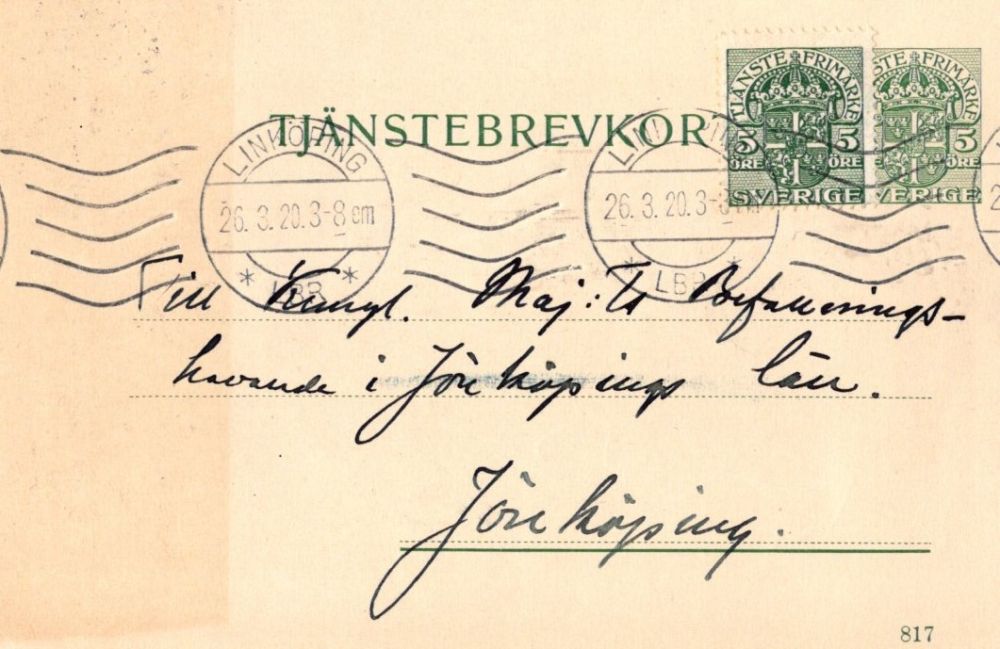 TJÄNSTEBREVKORT
TJÄNSTE FRIMÄRKE
5 5
ÖRE ÖRE
SVERIGE
STE FRIMÄRKE
5
ÖRE
VERIGE
LINKÖPING
26.3.20.3-8 em
* LBR *
LINKÖPING
26.3.20.3-8 em
* LBR *
Till Kungl. Maj:ts Befallnings-
havande i Jönköpings län.
Jönköping.
817